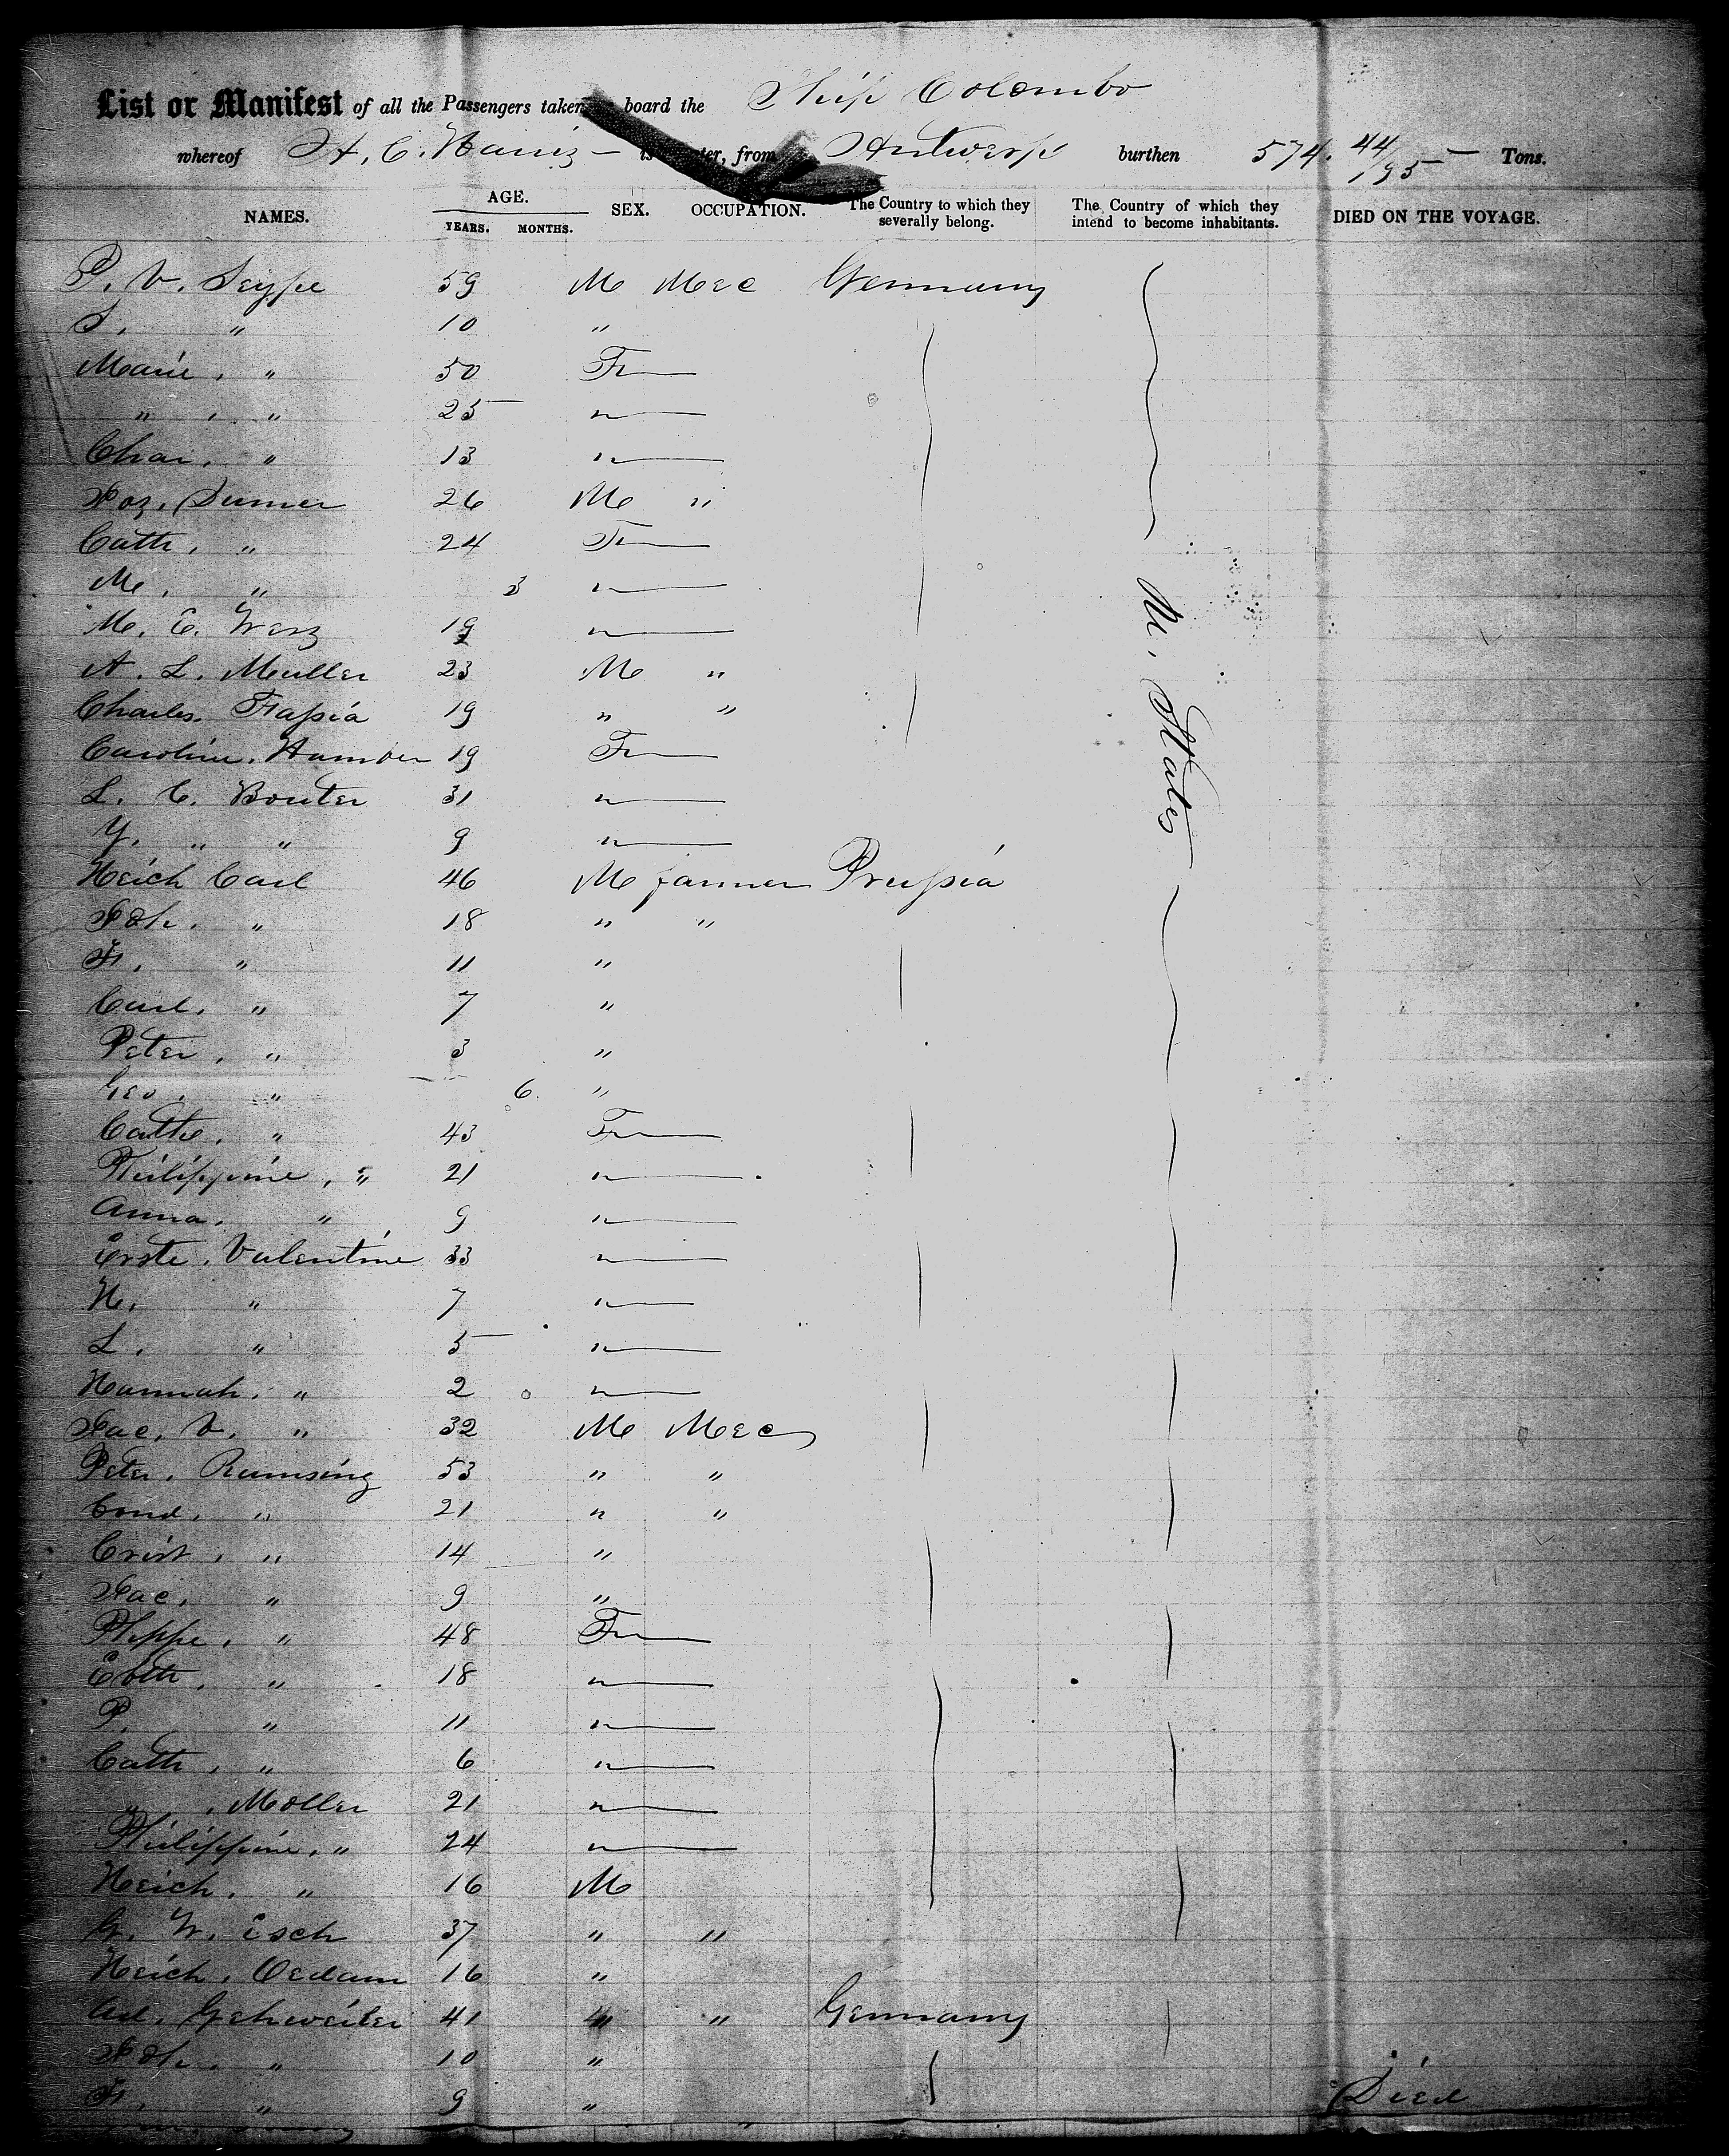 List or Manifest of all the Passengers taken board the Ship Colombo
whereof H. C. is ter, from Antwerp burthen 574. 44/95 Tons.
NAMES. AGE. YEARS. MONTHS. SEX. OCCUPATION. The Country to which they severally belong. The Country of which they intend to become inhabitants. DIED ON THE VOYAGE.
P. V. Seyppe 59 M Mec Germany
S. " 10 "
Marie, " 50 F
" , " 25 "
Char. " 13 "
Joz. Dumer 26 M "
Cath, " 24 F
M, " 3 "
M. E. Werz 19 "
A. L. Muller 23 M "
Charles. Fassia 19 " "
Caroline. Hamber 19 F
L. C. Bouter 31 "
Y. " " 9 "
U. States
Heich Carl 46 M farmer Prussia
Joh. " 18 " "
Fr. " 11 "
Carl. " 7 "
Peter, " 3 "
Geo. " 6. "
Cathe. " 43 F
Philippine, " 21 "
Anna. " 9 "
Erste. Valentine 33 "
H. " 7 "
L. " 5 "
Hannah. " 2 "
Jac. V. " 32 M Mec
Peter. Rumsing 53 " "
Cond. " 21 " "
Crist. " 14 "
Jac. " 9 "
Phppe. " 48 F
Eoth. " 18 "
P. " 11 "
Cath, " 6 "
" , Moller 21 "
Philippine, " 24 "
Heich. " 16 M
G. W. Esch 37 " "
Heich. Oedam 16 "
Ad. Gehweiler 41 " " Germany
Joh. " 10 "
Fr. " 9 " Died